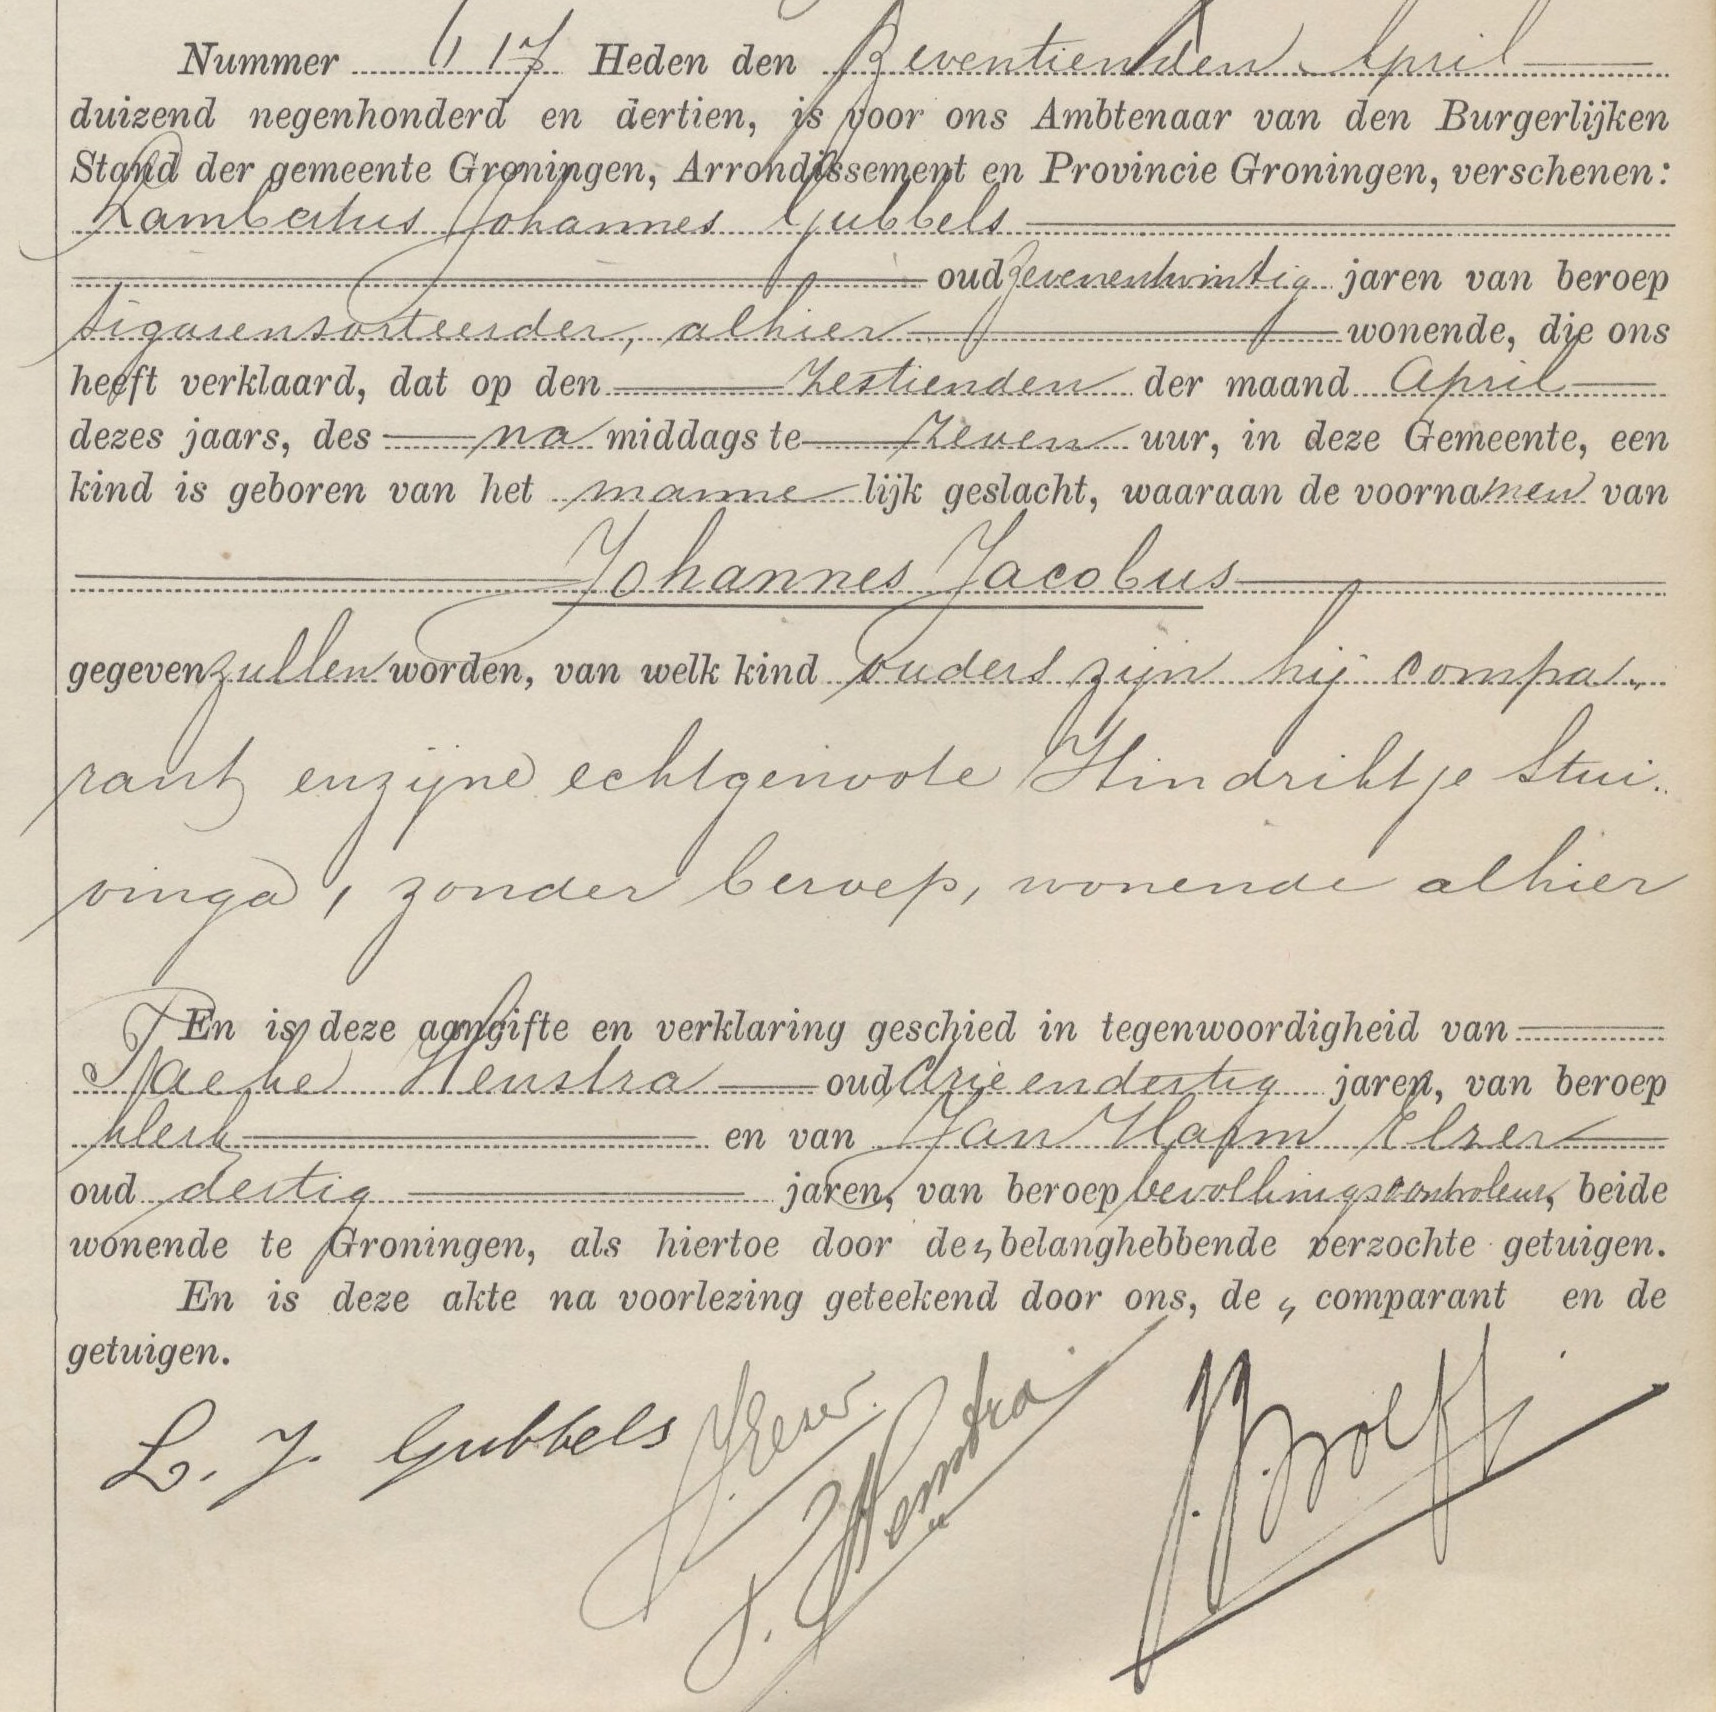 Nummer 617 Heden den Zeventienden April
duizend negenhonderd en dertien, is voor ons Ambtenaar van den Burgerlijken
Stand der gemeente Groningen, Arrondissement en Provincie Groningen, verschenen:
Lambertus Johannes Gubbels
oud zevenentwintig jaren van beroep
sigarensorteerder, alhier wonende, die ons
heeft verklaard, dat op den zestienden der maand April
dezes jaars, des na middags te zeven uur, in deze Gemeente, een
kind is geboren van het manne lijk geslacht, waaraan de voornamen van
Johannes Jacobus
gegeven zullen worden, van welk kind ouders zijn hij compa-
rant en zijne echtgenoote Hindriktje Stui-
vinga, zonder beroep, wonende alhier
En is deze aangifte en verklaring geschied in tegenwoordigheid van
Taeke Henstra oud drieendertig jaren, van beroep
klerk en van Jan Harm Elzer
oud dertig jaren, van beroep bevolkingscontroleur, beide
wonende te Groningen, als hiertoe door de belanghebbende verzochte getuigen.
En is deze akte na voorlezing geteekend door ons, de comparant en de
getuigen.
L. J. Gubbels